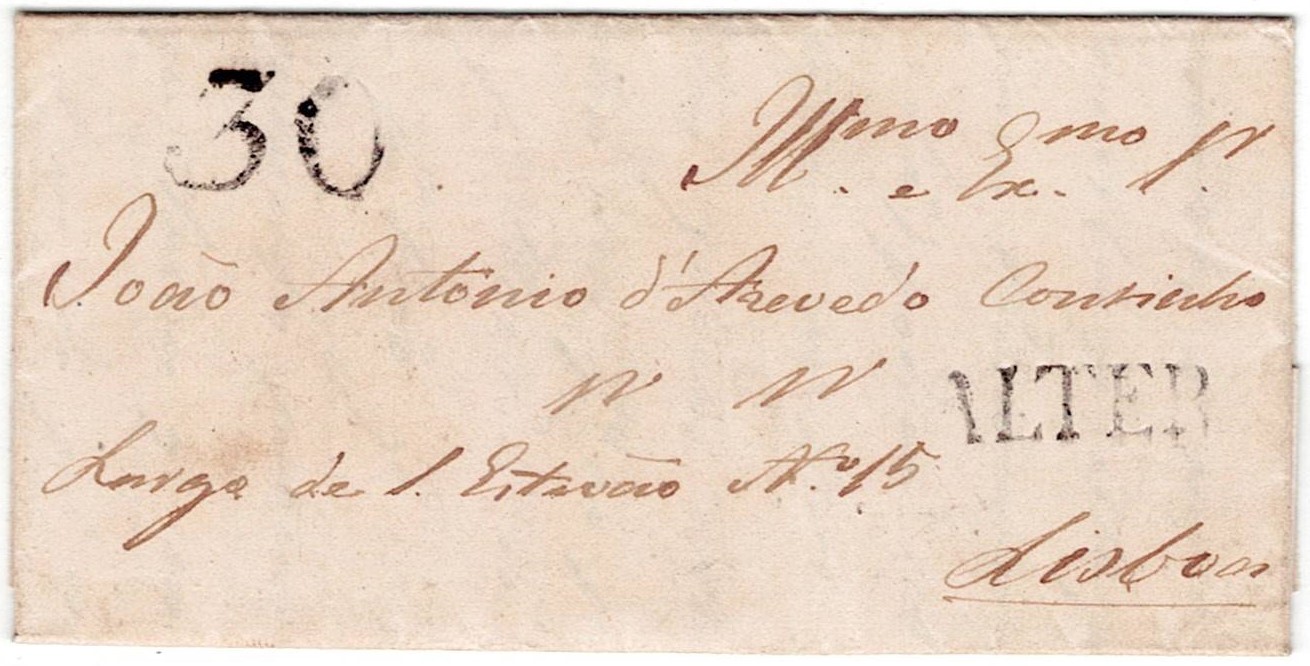 30
Illmo. e Exmo. Sr.
João António d'Azevedo Coutinho
ALTER
Largo de S. Estevão No. 15
Lisboa